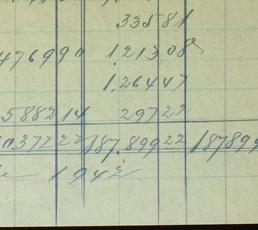 33581
476990 1.21308
1.26447
588214 29722
037222 187.89922 187899
1942